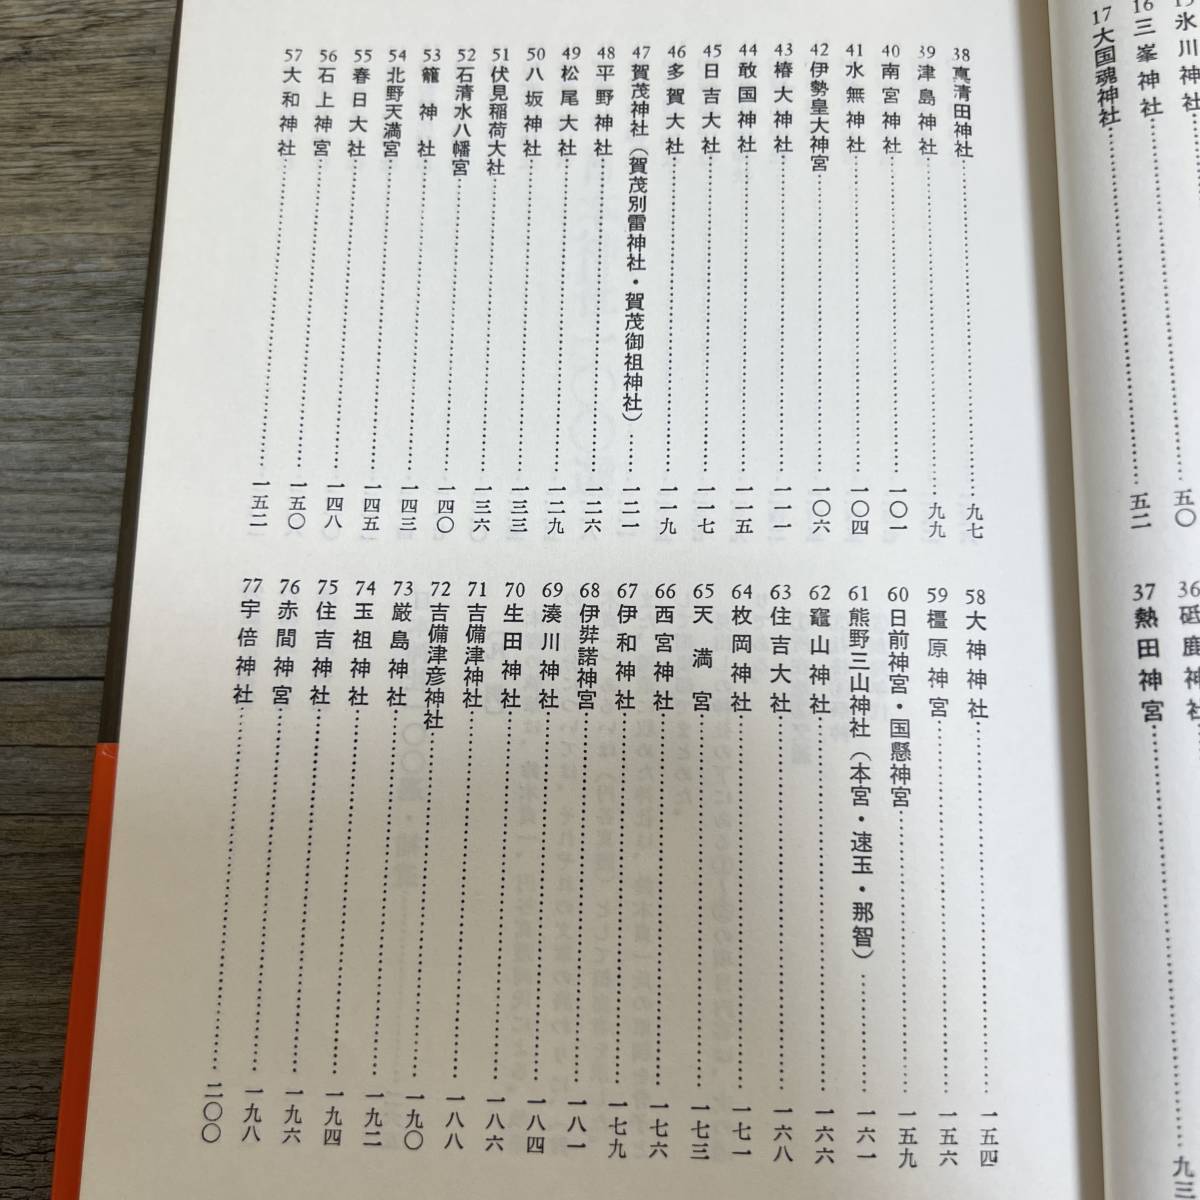 15氷川神社
16三峯神社 五〇
17大国魂神社 五二
36砥鹿神社
37熱田神宮 九三
38真清田神社 九七
39津島神社 九九
40南宮神社 一〇一
41水無神社 一〇四
42伊勢皇大神宮 一〇六
43椿大神社 一一一
44敢国神社 一一五
45日吉大社 一一七
46多賀大社 一一九
47賀茂神社(賀茂別雷神社・賀茂御祖神社) 一二一
48平野神社 一二六
49松尾大社 一二九
50八坂神社 一三三
51伏見稲荷大社 一三六
52石清水八幡宮 一四〇
53籠神社 一四三
54北野天満宮 一四五
55春日大社 一四八
56石上神宮 一五〇
57大和神社 一五二
58大神神社 一五四
59橿原神宮 一五六
60日前神宮・国懸神宮 一五九
61熊野三山神社(本宮・速玉・那智) 一六一
62竈山神社 一六六
63住吉大社 一六八
64枚岡神社 一七一
65天満宮 一七三
66西宮神社 一七六
67伊和神社 一七九
68伊弉諾神宮 一八一
69湊川神社 一八四
70生田神社 一八六
71吉備津神社 一八八
72吉備津彦神社 一九〇
73厳島神社 一九二
74玉祖神社 一九四
75住吉神社 一九六
76赤間神宮 一九八
77宇倍神社 二〇〇